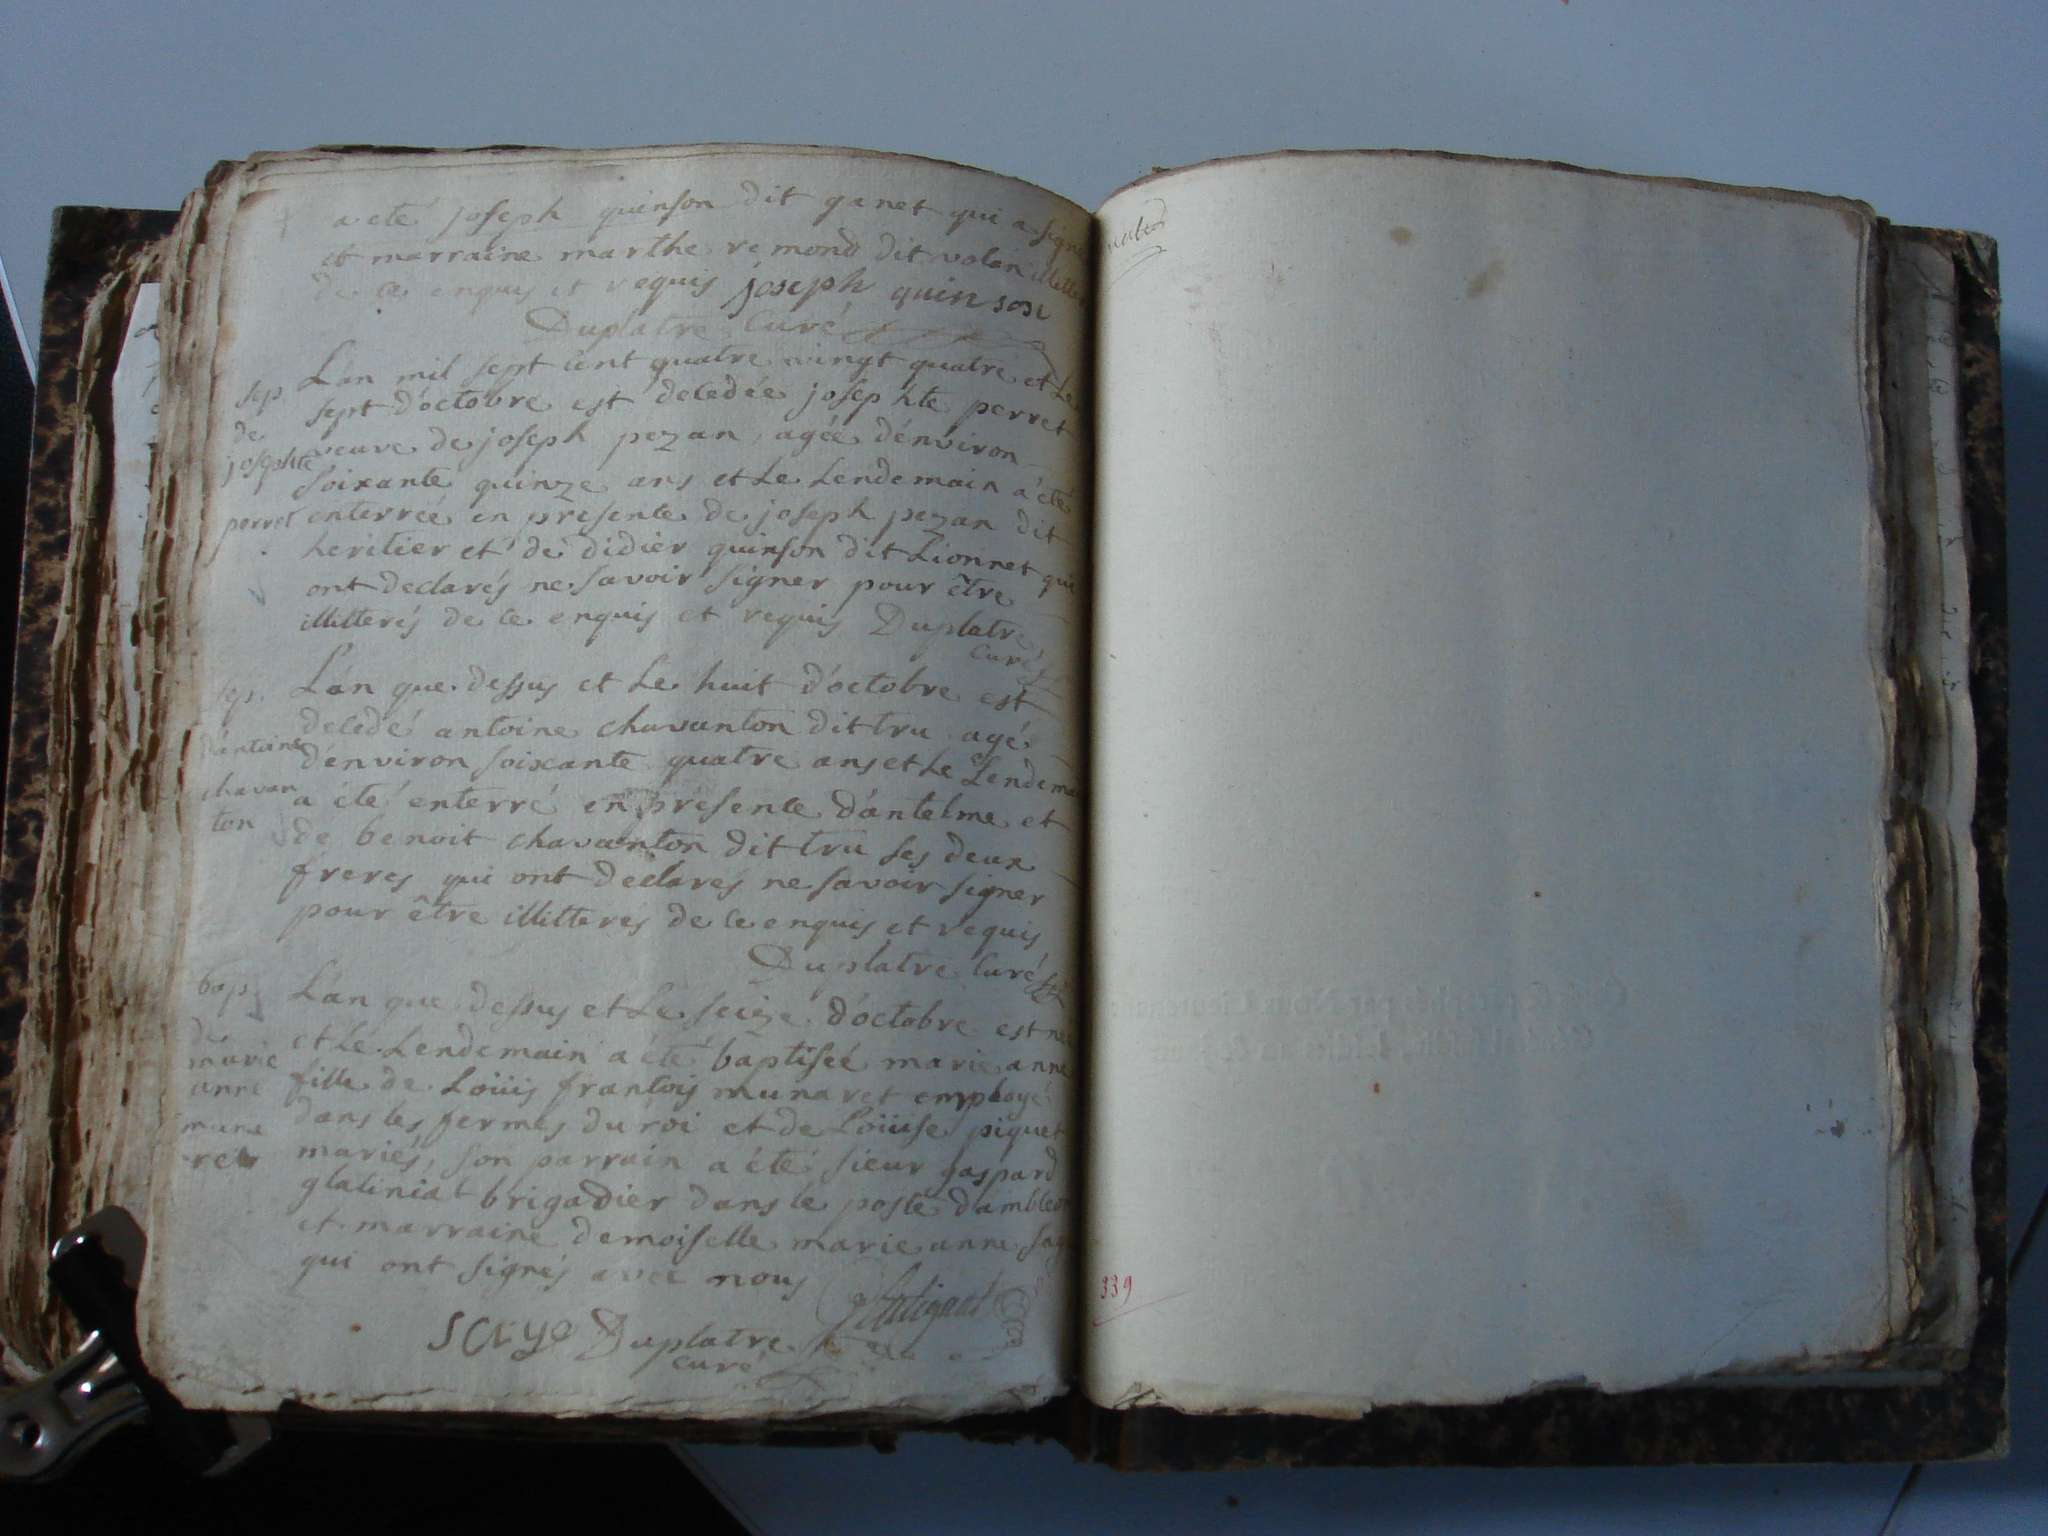 a eté joseph quinson dit ganet qui a signé
et marraine marthe remond dit volan illiteré
de ce enquis et requis joseph quinson
Duplatre Curé
sep
de
josephte
perret
L'an mil sept cent quatre vingt quatre et Le
sept d'octobre est decedée josephte perret
veuve de joseph pezan, agée d'énviron
soixante quinze ans et Le Lendemain a été
enterrée en presence de joseph pezan dit
heritier et de didier quinson dit Lionnet qui
ont declarés ne savoir signer pour être
illitterés de ce enquis et requis Duplatre
curé
sep.
d'antoine
chavan
ton
L'an que dessus et Le huit d'octobre est
decedé antoine chavanton dit tru agé
d'énviron soixante quatre ans et Le Lendemain
a été enterré en présence d'antelme et
de benoit chavanton dit tru ses deux
freres qui ont declarés ne savoir signer
pour être illitterés de ce enquis et requis
Duplatre Curé
bap
de
marie
anne
muna
ret
L'an que dessus et Le seize d'octobre est née
et Le Lendemain a été baptiseé marie anne
fille de Loüis francois munaret employé
dans les fermes du roi et de Loüise piquet
mariés, son parrain a été sieur gaspard
glatiniat brigadier dans le poste d'ambleon
et marraine demoiselle marie anne saye
qui ont signés avec nous
saye Duplatre
curé
339